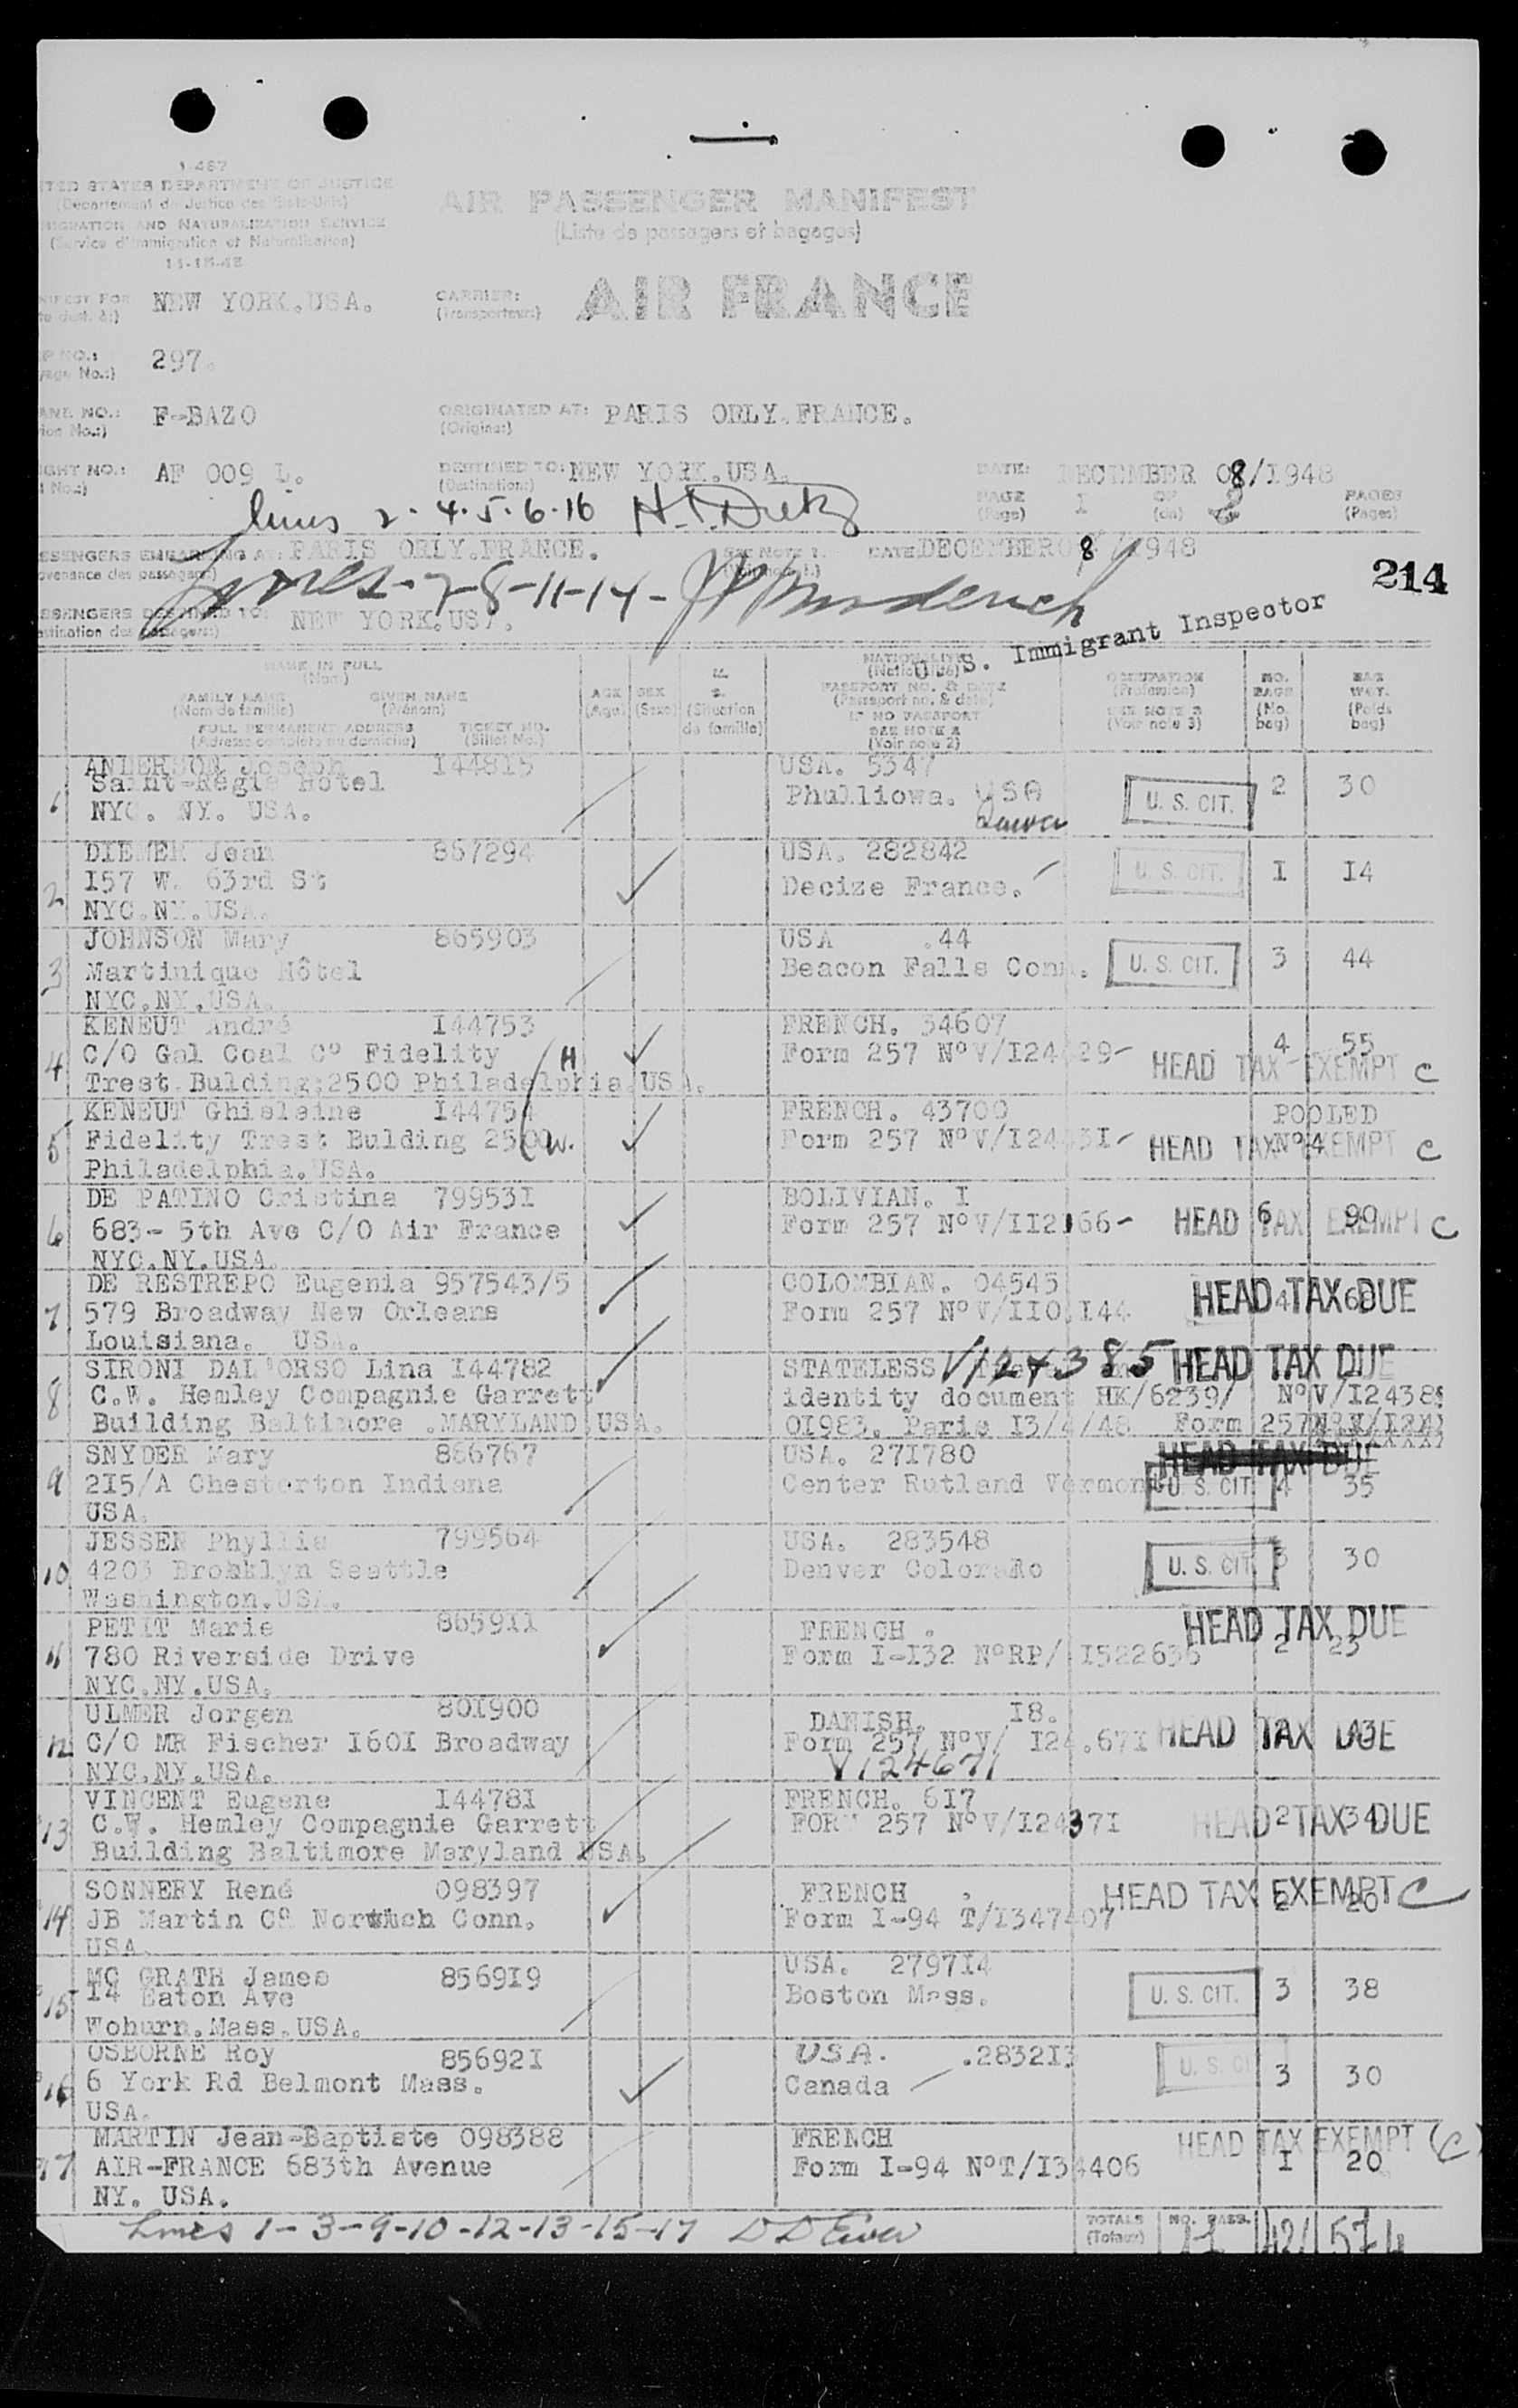 1-487
UNITED STATES DEPARTMENT OF JUSTICE
(Departement de Justice des Etats-Unis)
IMMIGRATION AND NATURALIZATION SERVICE
(Service d'Immigration et Naturalisation)
11-15-45
AIR PASSENGER MANIFEST
(Liste de passagers et bagages)
NEW YORK.USA.
CARRIER:
(Transporteur:)
AIR FRANCE
297.
F-BAZO
ORIGINATED AT: PARIS ORLY.FRANCE.
(Origine:)
AF 009 L.
DESTINED TO: NEW YORK.USA.
(Destination:)
DATE: DECEMBER 08/1948
PAGE 1 OF 2 PAGES
(Page) (de) (Pages)
lines 2-4-5-6-16 H.T. Dietz
PARIS ORLY.FRANCE.
SEE NOTE 1. DATE: DECEMBER 08/1948
Lines-7-8-11-14-
214
NEW YORK.USA.
U. S. Immigrant Inspector
NAME IN FULL
(Nom)
FAMILY NAME GIVEN NAME
(Nom de famille) (Prénom)
FULL PERMANENT ADDRESS TICKET NO.
(Adresse complète au domicile) (Billet No.)
AGE
(Age)
SEX
(Sexe)
M.
S.
(Situation
de famille)
NATIONALITY
(Nationalité)
PASSPORT NO. & DATE
(Passeport no. & date)
IF NO PASSPORT
SEE NOTE 2
(Voir note 2)
OCCUPATION
(Profession)
SEE NOTE 3
(Voir note 3)
NO.
BAGS
(No.
bag)
BAG
WGT.
(Poids
bag)
1 ANDERSON Joseph 144815 USA. 5347
Saint-Regis Hôtel Phulliowa. USA U. S. CIT. 2 30
NYC. NY. USA. Iowa
2 DIEMER Jean 867294 USA. 282842
157 W. 63rd St Decize France. U. S. CIT. 1 14
NYC.NY.USA.
3 JOHNSON Mary 865903 USA .44
Martinique Hôtel Beacon Falls Conn. U. S. CIT. 3 44
NYC.NY.USA.
4 KENEUT André 144753 FRENCH. 34607
C/O Gal Coal C° Fidelity (H Form 257 N°V/124629- 4 55
Trest Bulding;2500 Philadelphia USA. HEAD TAX EXEMPT C
5 KENEUT Ghislaine 144754 FRENCH. 43700 POOLED
Fidelity Trest Bulding 2500 W. Form 257 N°V/124631- N°4 HEAD TAX EXEMPT C
Philadelphia.USA.
6 DE PATINO Cristina 799531 BOLIVIAN. I
683- 5th Ave C/O Air France Form 257 N°V/112166- HEAD TAX EXEMPT C 6 90
NYC.NY.USA.
7 DE RESTREPO Eugenia 957543/5 COLOMBIAN. 04545
579 Broadway New Orleans Form 257 N°V/110.144 HEAD TAX DUE 4 60
Louisiana. USA.
8 SIRONI DAL'ORSO Lina 144782 STATELESS V124385 HEAD TAX DUE
C.W. Hemley Compagnie Garrett identity document HK/6239/ N°V/12438
Building Baltimore .MARYLAND USA. 01983. Paris 13/4/48 Form 257
9 SNYDER Mary 866767 USA. 271780 HEAD TAX DUE
215/A Chesterton Indiana Center Rutland Vermont U. S. CIT. 4 35
USA.
10 JESSEN Phyllis 799564 USA. 283548
4203 Brooklyn Seattle Denver Colorado U. S. CIT. 3 30
Washington.USA.
11 PETIT Marie 865911 FRENCH . HEAD TAX DUE
780 Riverside Drive Form I-132 N°RP/ 1522636 2 23
NYC.NY.USA.
12 ULMER Jorgen 801900 DANISH. 18.
C/O MR Fischer 1601 Broadway Form 257 N°V/ 124.671 HEAD TAX DUE
NYC.NY.USA. V124671
13 VINCENT Eugene 144781 FRENCH. 617
C.W. Hemley Compagnie Garrett FORM 257 N°V/124371 HEAD TAX DUE 2 34
Building Baltimore Maryland USA.
14 SONNERY René 098397 FRENCH . HEAD TAX EXEMPT C
JB Martin C° Norwich Conn. Form I-94 T/1347407 2 20
USA.
15 MC GRATH James 856919 USA. 279714
14 Eaton Ave Boston Mass. U. S. CIT. 3 38
Woburn.Mass.USA.
16 OSBORNE Roy 856921 USA. .283213
6 York Rd Belmont Mass. Canada U. S. CI 3 30
USA.
17 MARTIN Jean-Baptiste 098388 FRENCH HEAD TAX EXEMPT (C)
AIR-FRANCE 683th Avenue Form I-94 N°T/134406 1 20
NY. USA.
Lines 1-3-9-10-12-13-15-17 D D Ewer
TOTALS NO. PASS.
(Totaux) 42 574